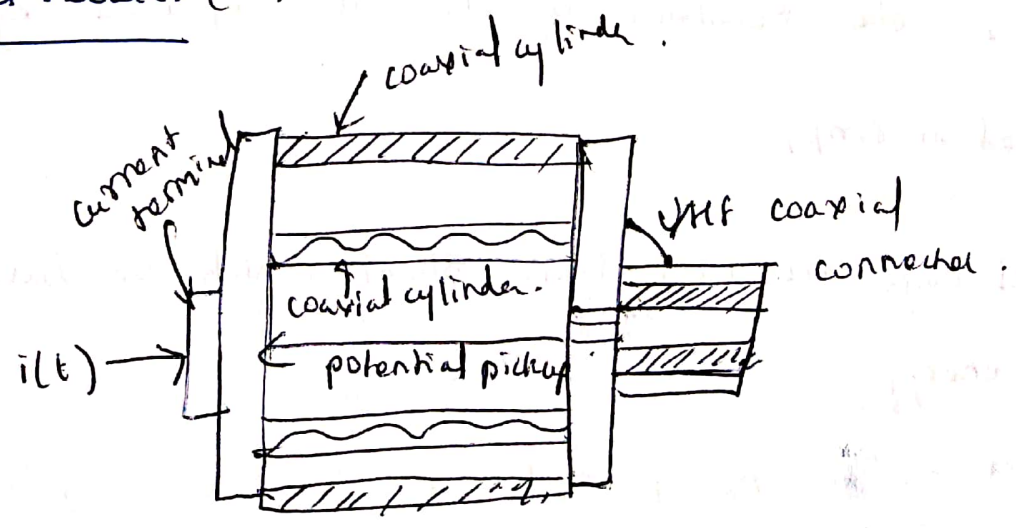 coaxial cylinder.
current
terminal
UHF coaxial
connector.
coaxial cylinder.
potential pickup
i(t)